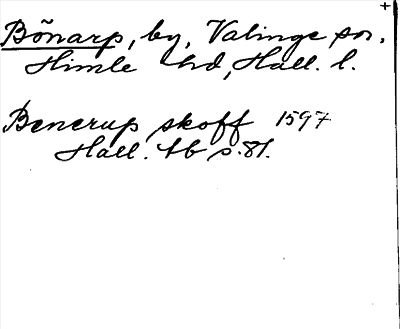 +
Bönarp, by, Valinge sn,
Himle hd, Hall. l.
Benerup skoff 1597
Hall. tb s. 81.